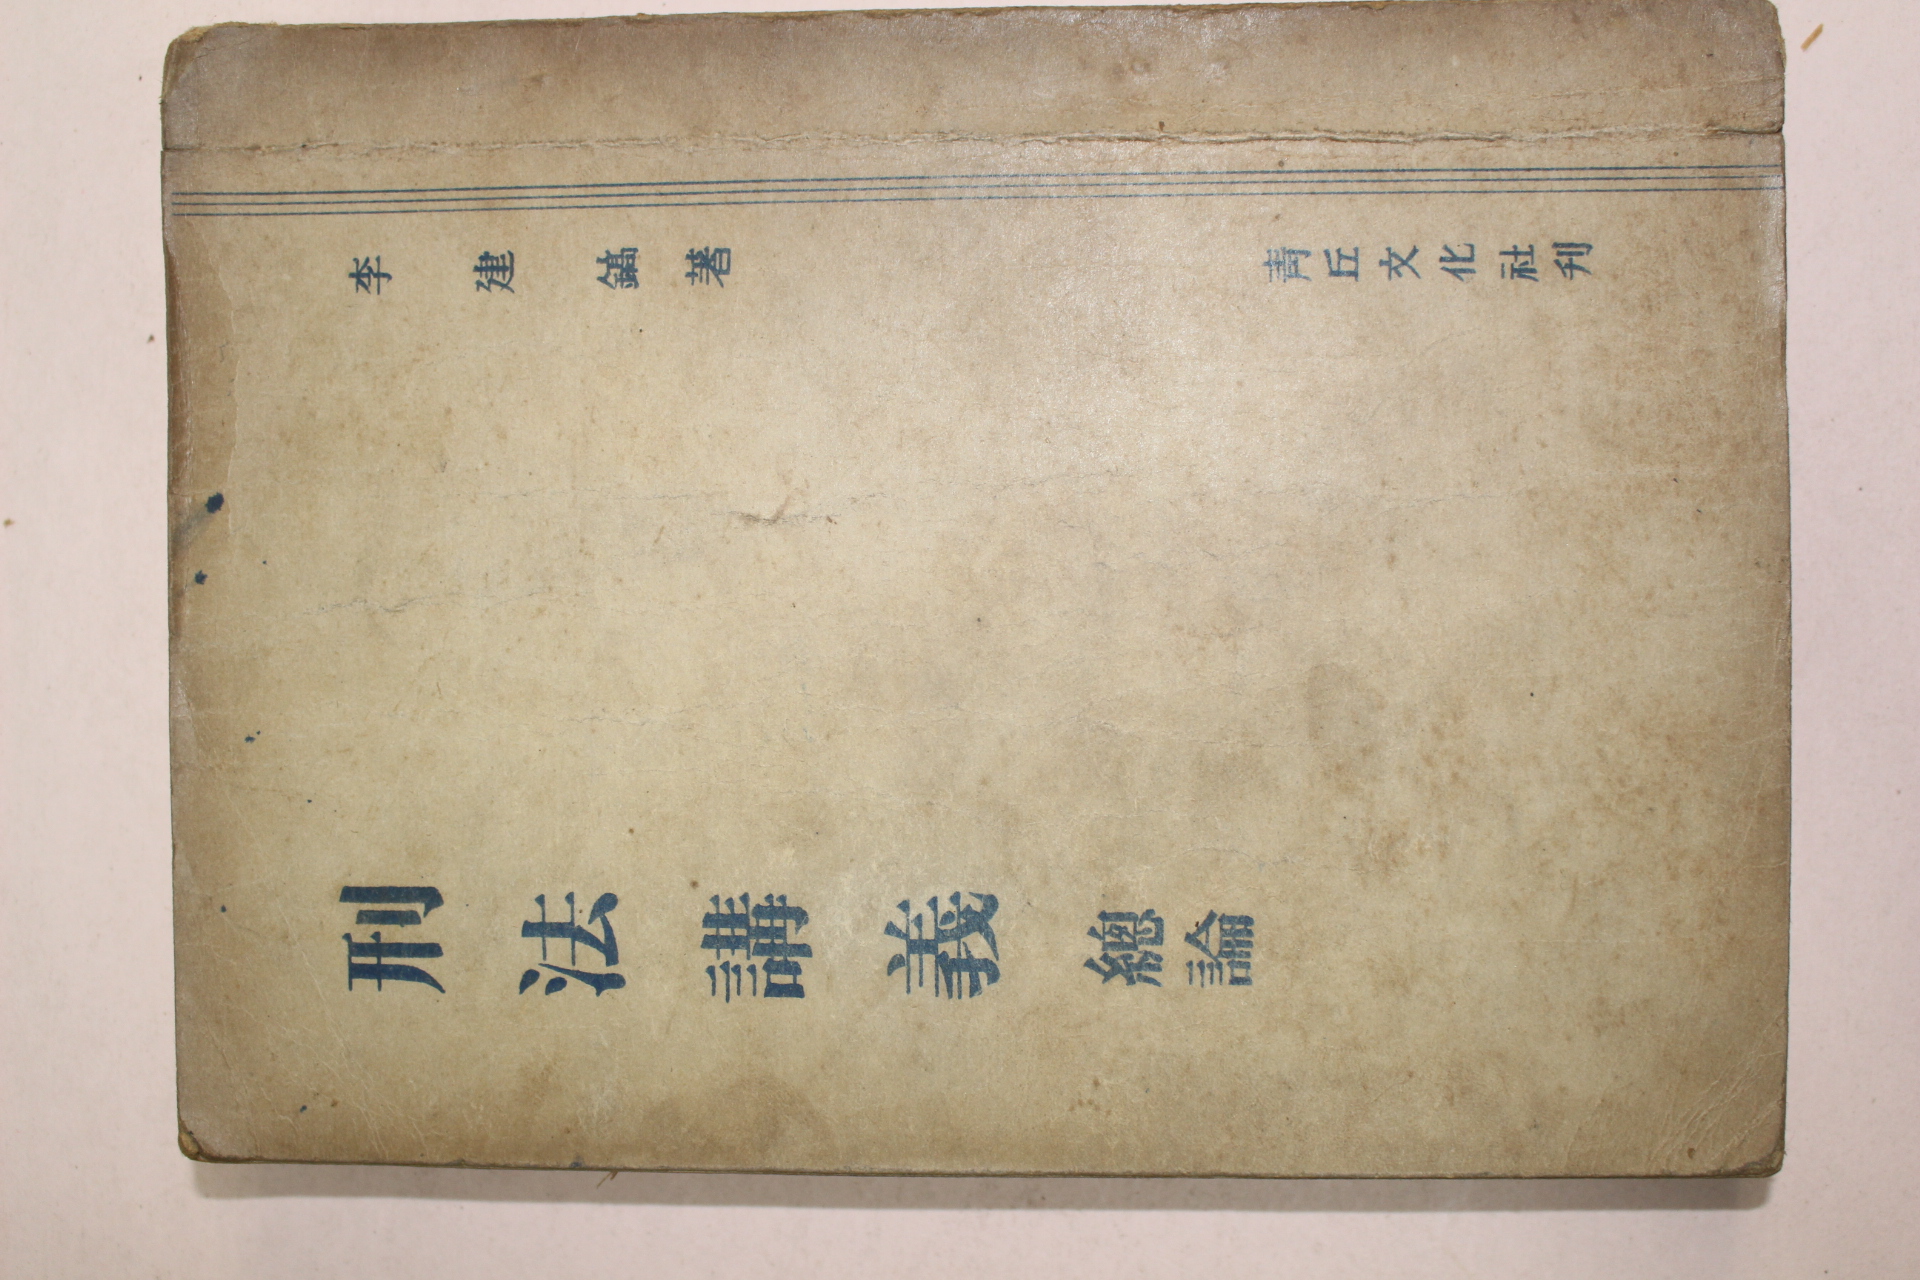 刑法講義 總論
李建鎬 著
靑丘文化社刊